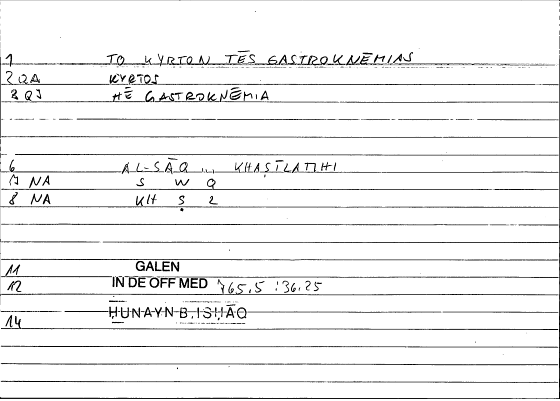 1 TO KYRTON TĒS GASTROKNĒMIAS
2 QA KYRTOS
3 QJ HĒ GASTROKNĒMIA
6 AL-SĀQ ... KHAṢĪLATIHI
7 NA S W Q
8 NA KH Ṣ L
11 GALEN
12 IN DE OFF MED 765.5 : 36.25
14 ḤUNAYN B. ISḤĀQ